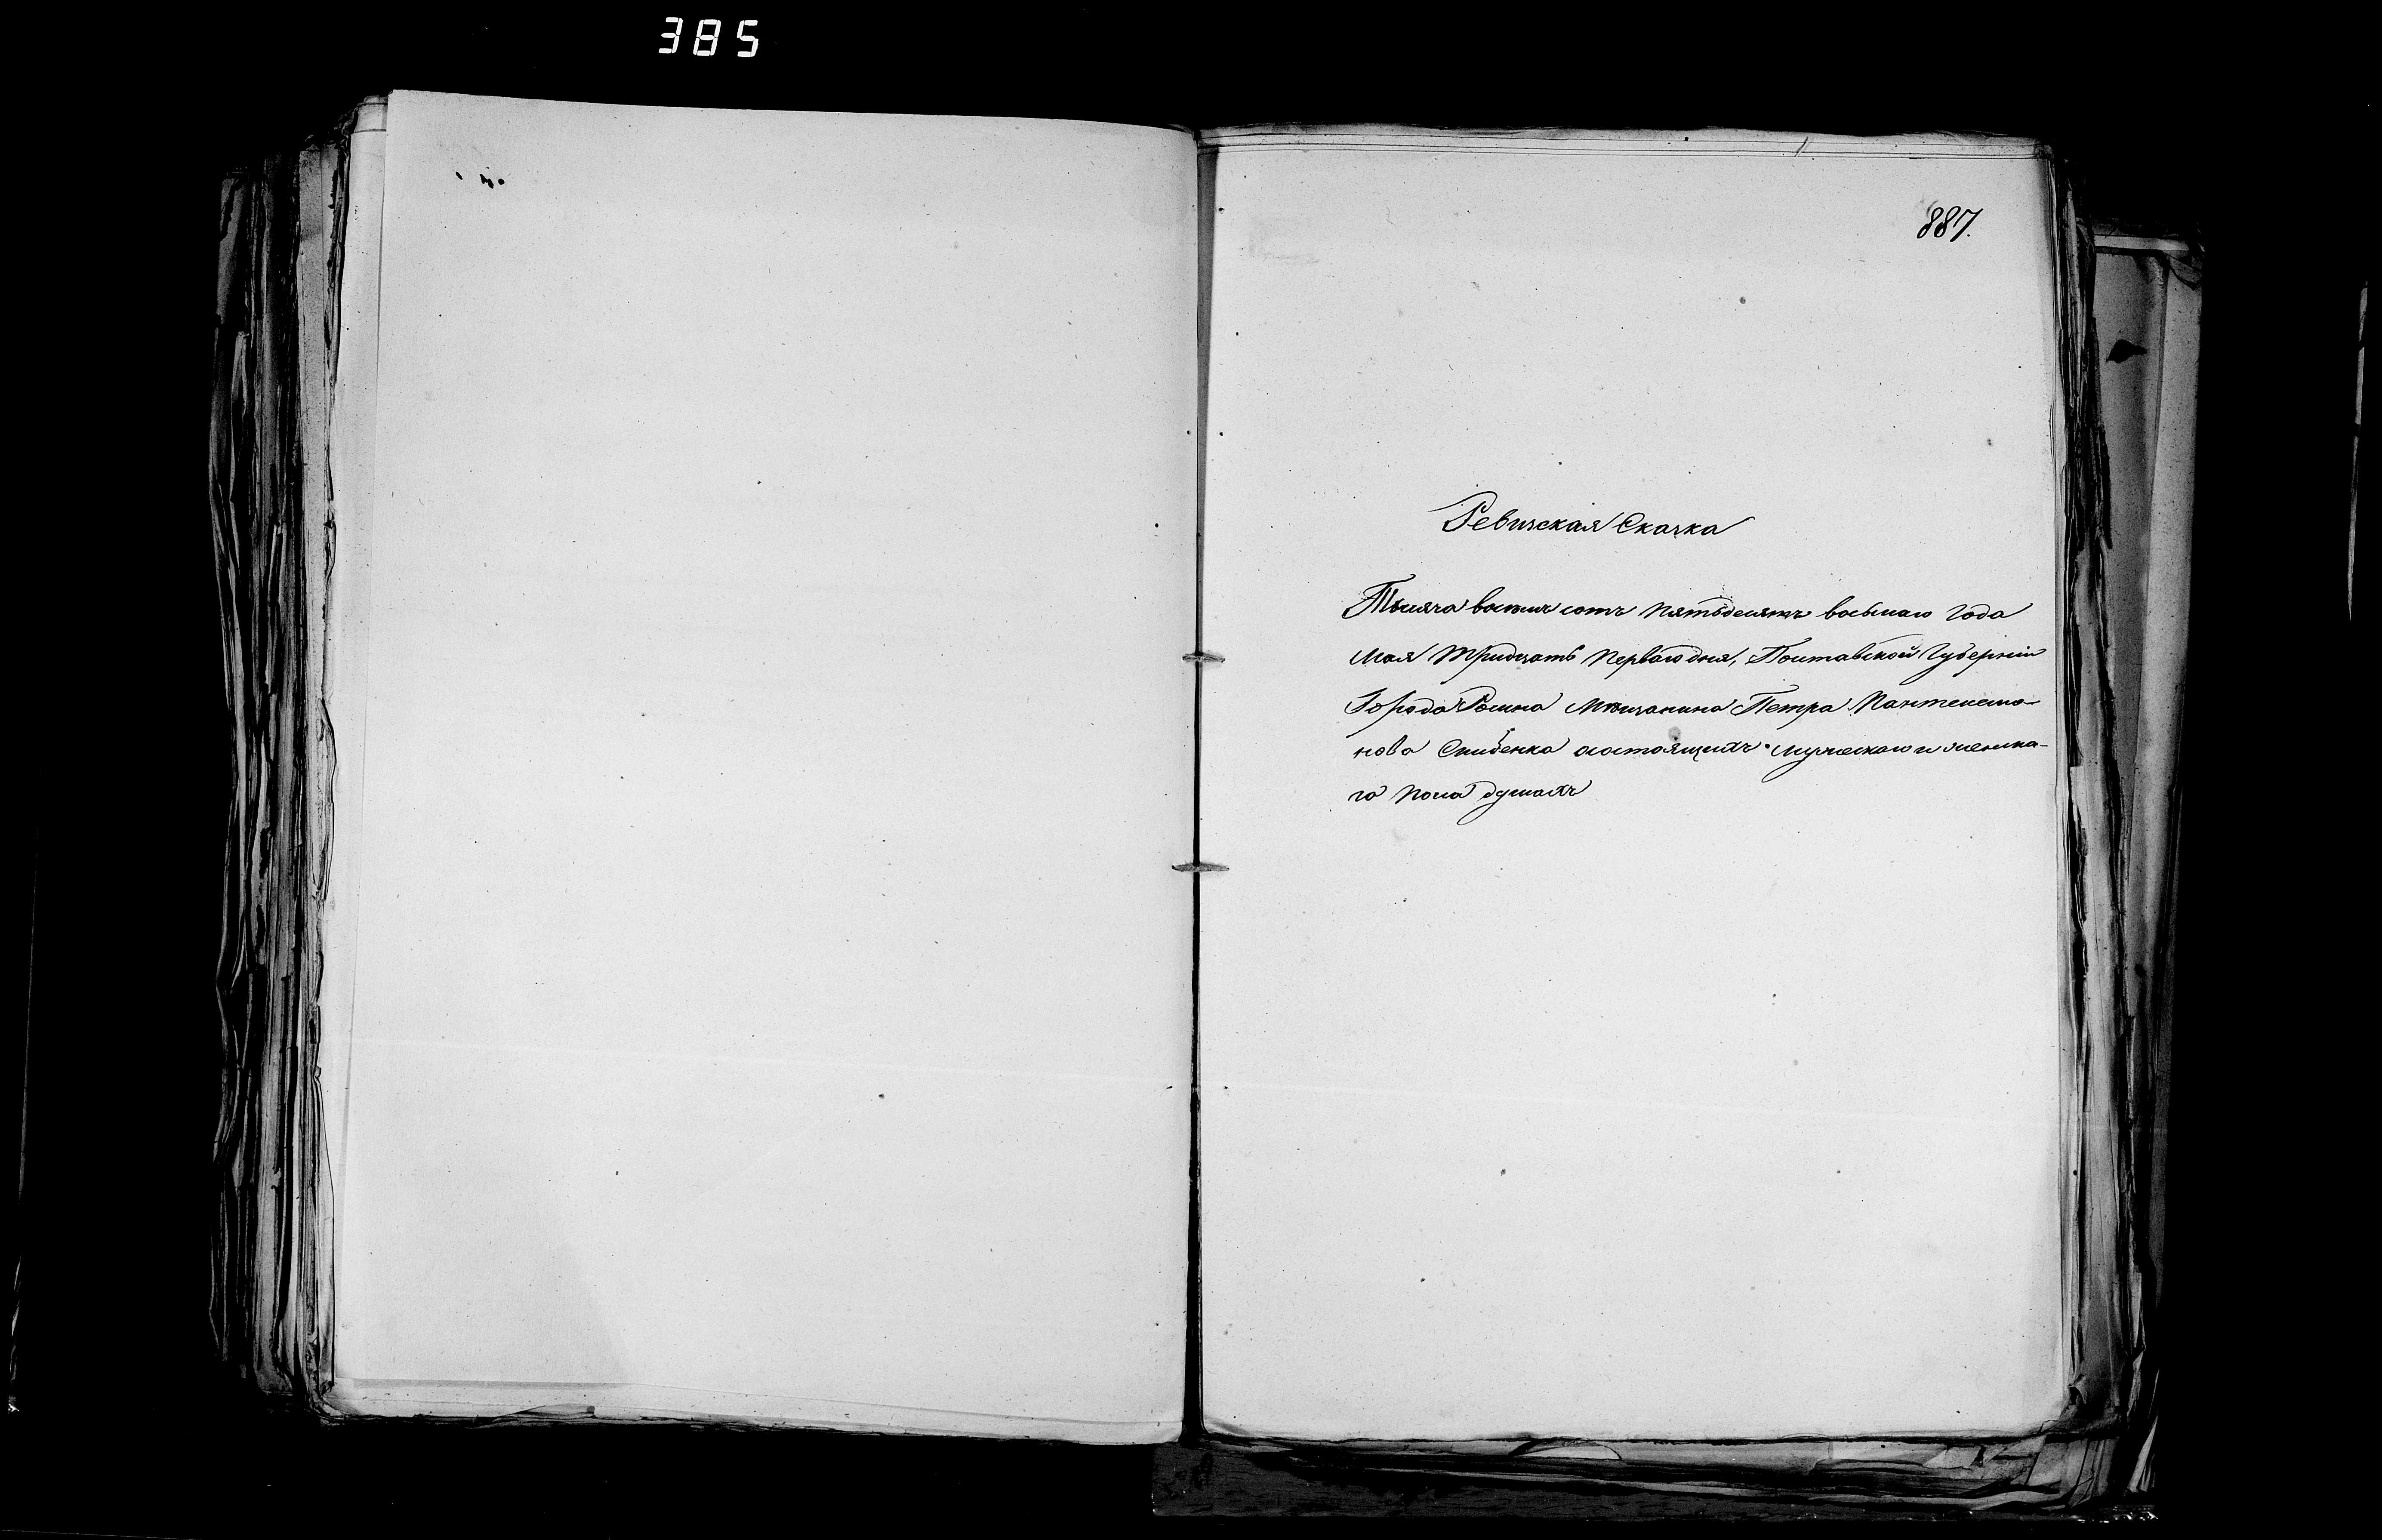 385
887.
Ревизская Сказка
Тысяча восемь сотъ пятьдесятъ восьмаго года
Мая тридцать перваго дня, Полтавской Губерніи
Города Ромна Мѣщанина Петра Пантелемо-
нова состоящихъ мужескаго и женска-
го пола душахъ